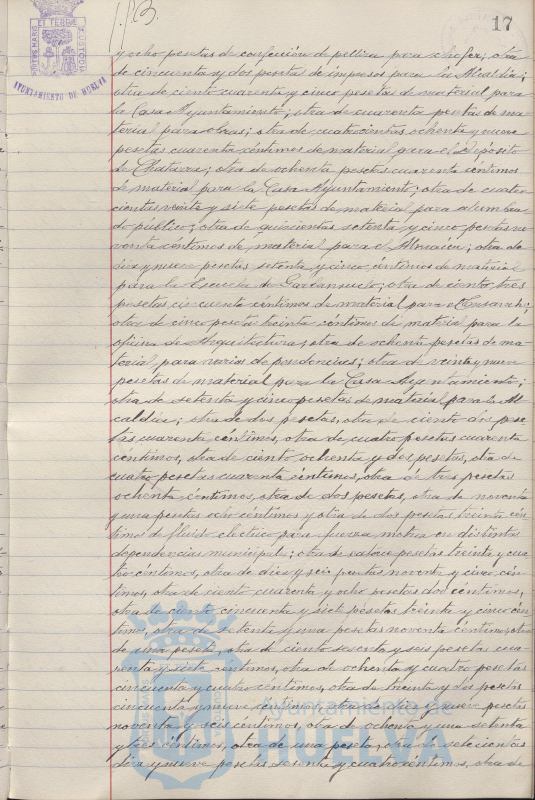 17
AYUNTAMIENTO DE HUELVA
y ocho pesetas de confección de pelliza para chofer; otra
de cincuenta y dos pesetas de impresos para la Alcaldía;
otra de ciento cuarenta y cinco pesetas de material para
la Casa Ayuntamiento; otra de cuarenta pesetas de ma-
terial para obras; otra de cuatrocientas ochenta y nueve
pesetas cuarenta céntimos de material para el Depósito
de Chatarra; otra de ochenta pesetas cuarenta céntimos
de material para la Casa Ayuntamiento; otra de cuatro-
cientas veinte y siete pesetas de material para alumbra-
do público; otra de quinientas setenta y cinco pesetas no-
venta céntimos de material para el Almacén; otra de
diez y nueve pesetas setenta y cinco céntimos de material
para la Escuela de ; otra de ciento tres
pesetas cincuenta céntimos de material para el Ensanche;
otra de cinco pesetas treinta céntimos de material para la
oficina de Arquitectura; otra de ochenta pesetas de ma-
terial para varias dependencias; otra de veinte y nueve
pesetas de material para la Casa Ayuntamiento;
otra de setenta y cinco pesetas de material para la Al-
caldía; otra de dos pesetas, otra de ciento dos pese-
tas cuarenta céntimos, otra de cuatro pesetas cuarenta
céntimos, otra de ciento ochenta y dos pesetas, otra de
cuatro pesetas cuarenta céntimos, otra de tres pesetas
ochenta céntimos, otra de dos pesetas, otra de noventa
y una pesetas ocho céntimos y otra de dos pesetas treinta cén-
timos de fluido electrico para fuerza motriz en distintas
dependencias municipales; otra de catorce pesetas treinta y cua-
tro céntimos, otra de diez y seis pesetas noventa y cinco cén-
timos, otra de ciento cuarenta y ocho pesetas dos céntimos,
otra de ciento cincuenta y siete pesetas treinta y cinco cén-
timos, otra de setenta y una pesetas noventa céntimos, otra
de una peseta, otra de ciento sesenta y seis pesetas cua-
renta y siete céntimos, otra de ochenta y cuatro pesetas
cincuenta y cuatro céntimos, otra de treinta y dos pesetas
cincuenta y nueve céntimos, otra de diez y nueve pesetas
noventa y seis céntimos, otra de ochenta y una setenta
y tres céntimos, otra de una peseta, otra de setecientas
diez y nueve pesetas sesenta y cuatro céntimos, otra de
Ayuntamiento de
HUELVA